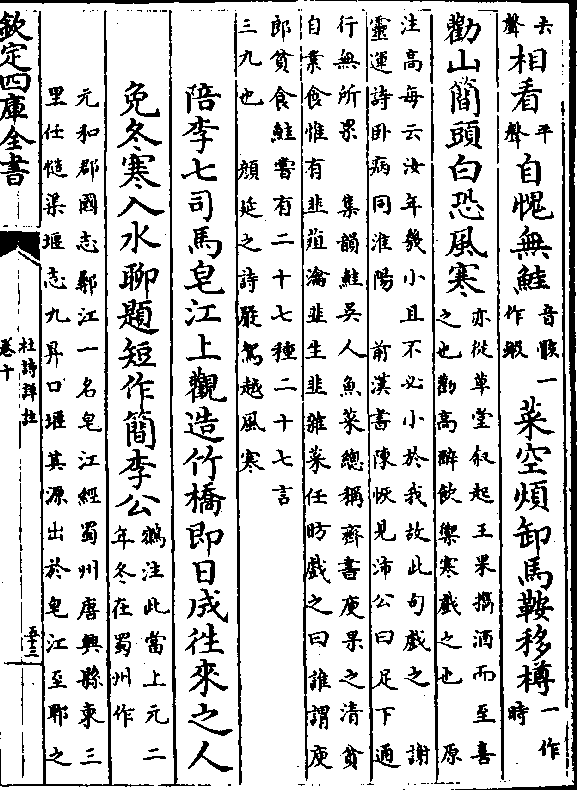 去聲相看平聲自愧無鮭音骸一作蝦菜空煩卸馬鞍移樽一作時
勸山簡頭白恐風寒亦從草堂叙起王果攜酒而至喜
之也勸高醉飲禦寒戲之也 原
注高每云汝年幾小且不必小於我故此句戲之 謝
靈運詩卧病同淮陽 前漢書陳恢見沛公曰足下通
行無所累 集韻鮭吳人魚菜總稱齊書庾杲之清貧
自業食惟有韭葅瀹韭生韭雜菜任昉戲之曰誰謂庾
郎貧食鮭嘗有二十七種二十七言
三九也 顔延之詩嚴駕越風寒
陪李七司馬皂江上觀造竹橋即日成徃來之人
免冬寒入水聊題短作簡李公鶴注此當上元二
年冬在蜀州作
元和郡國志郫江一名皂江經蜀州唐興縣東三
里任愷渠堰志九昇口堰其源出於皂江至郫之
欽定四庫全書
杜詩詳註
卷十
五十三